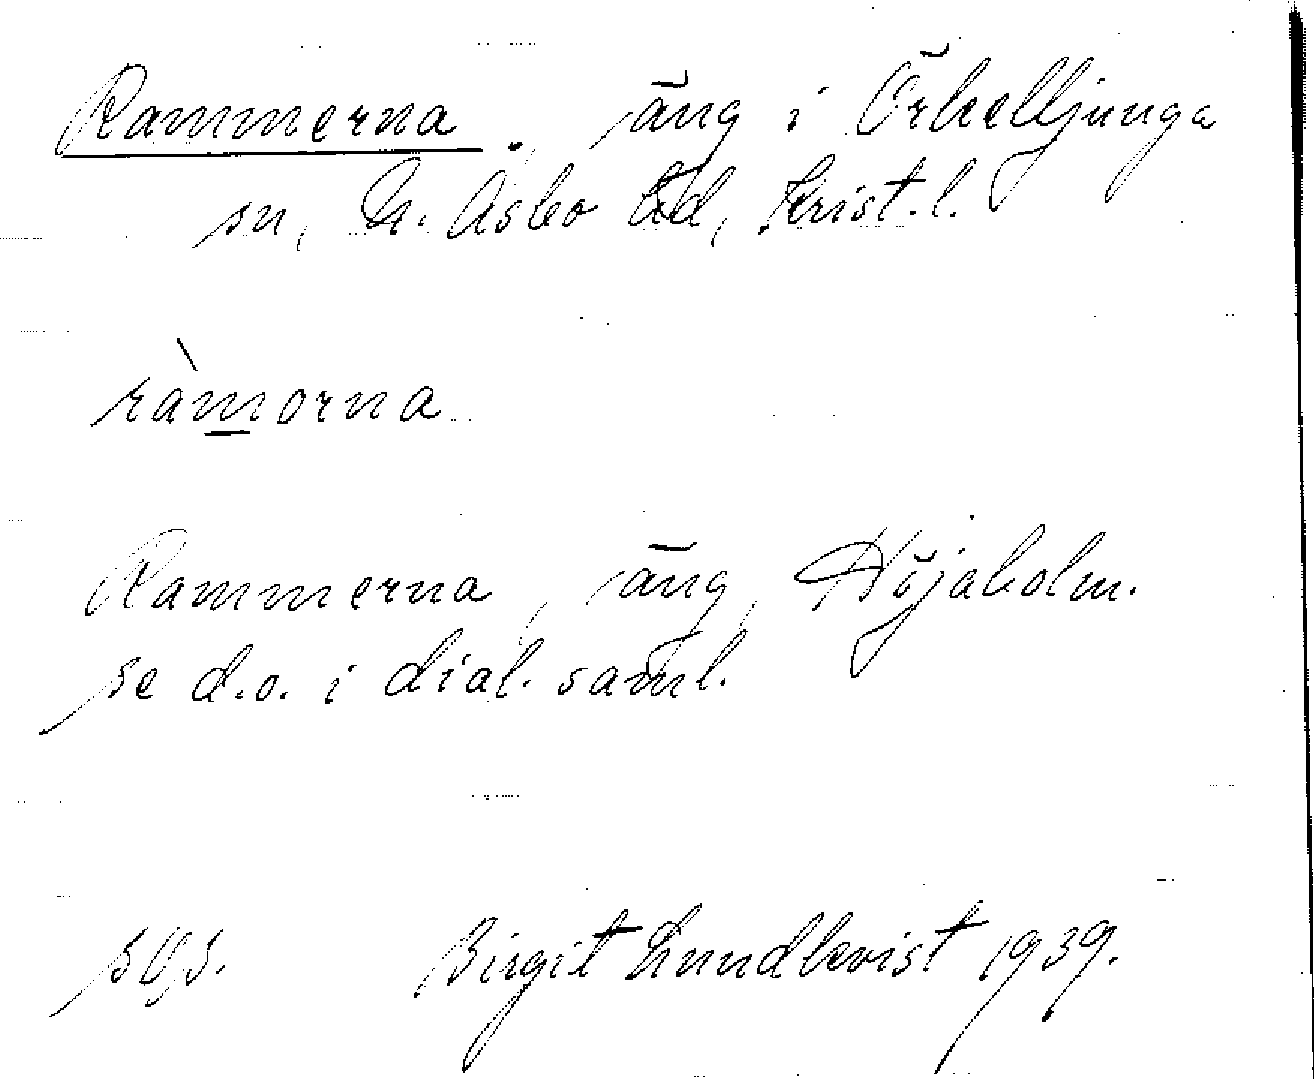 Rammerna, äng i Örkelljunga
sn, N. Åsbo hd, Krist. l.
ràmorna
Rammerna, äng, Höjaholm.
se d.o. i dial. saml.
Birgit Lundkvist 1939.